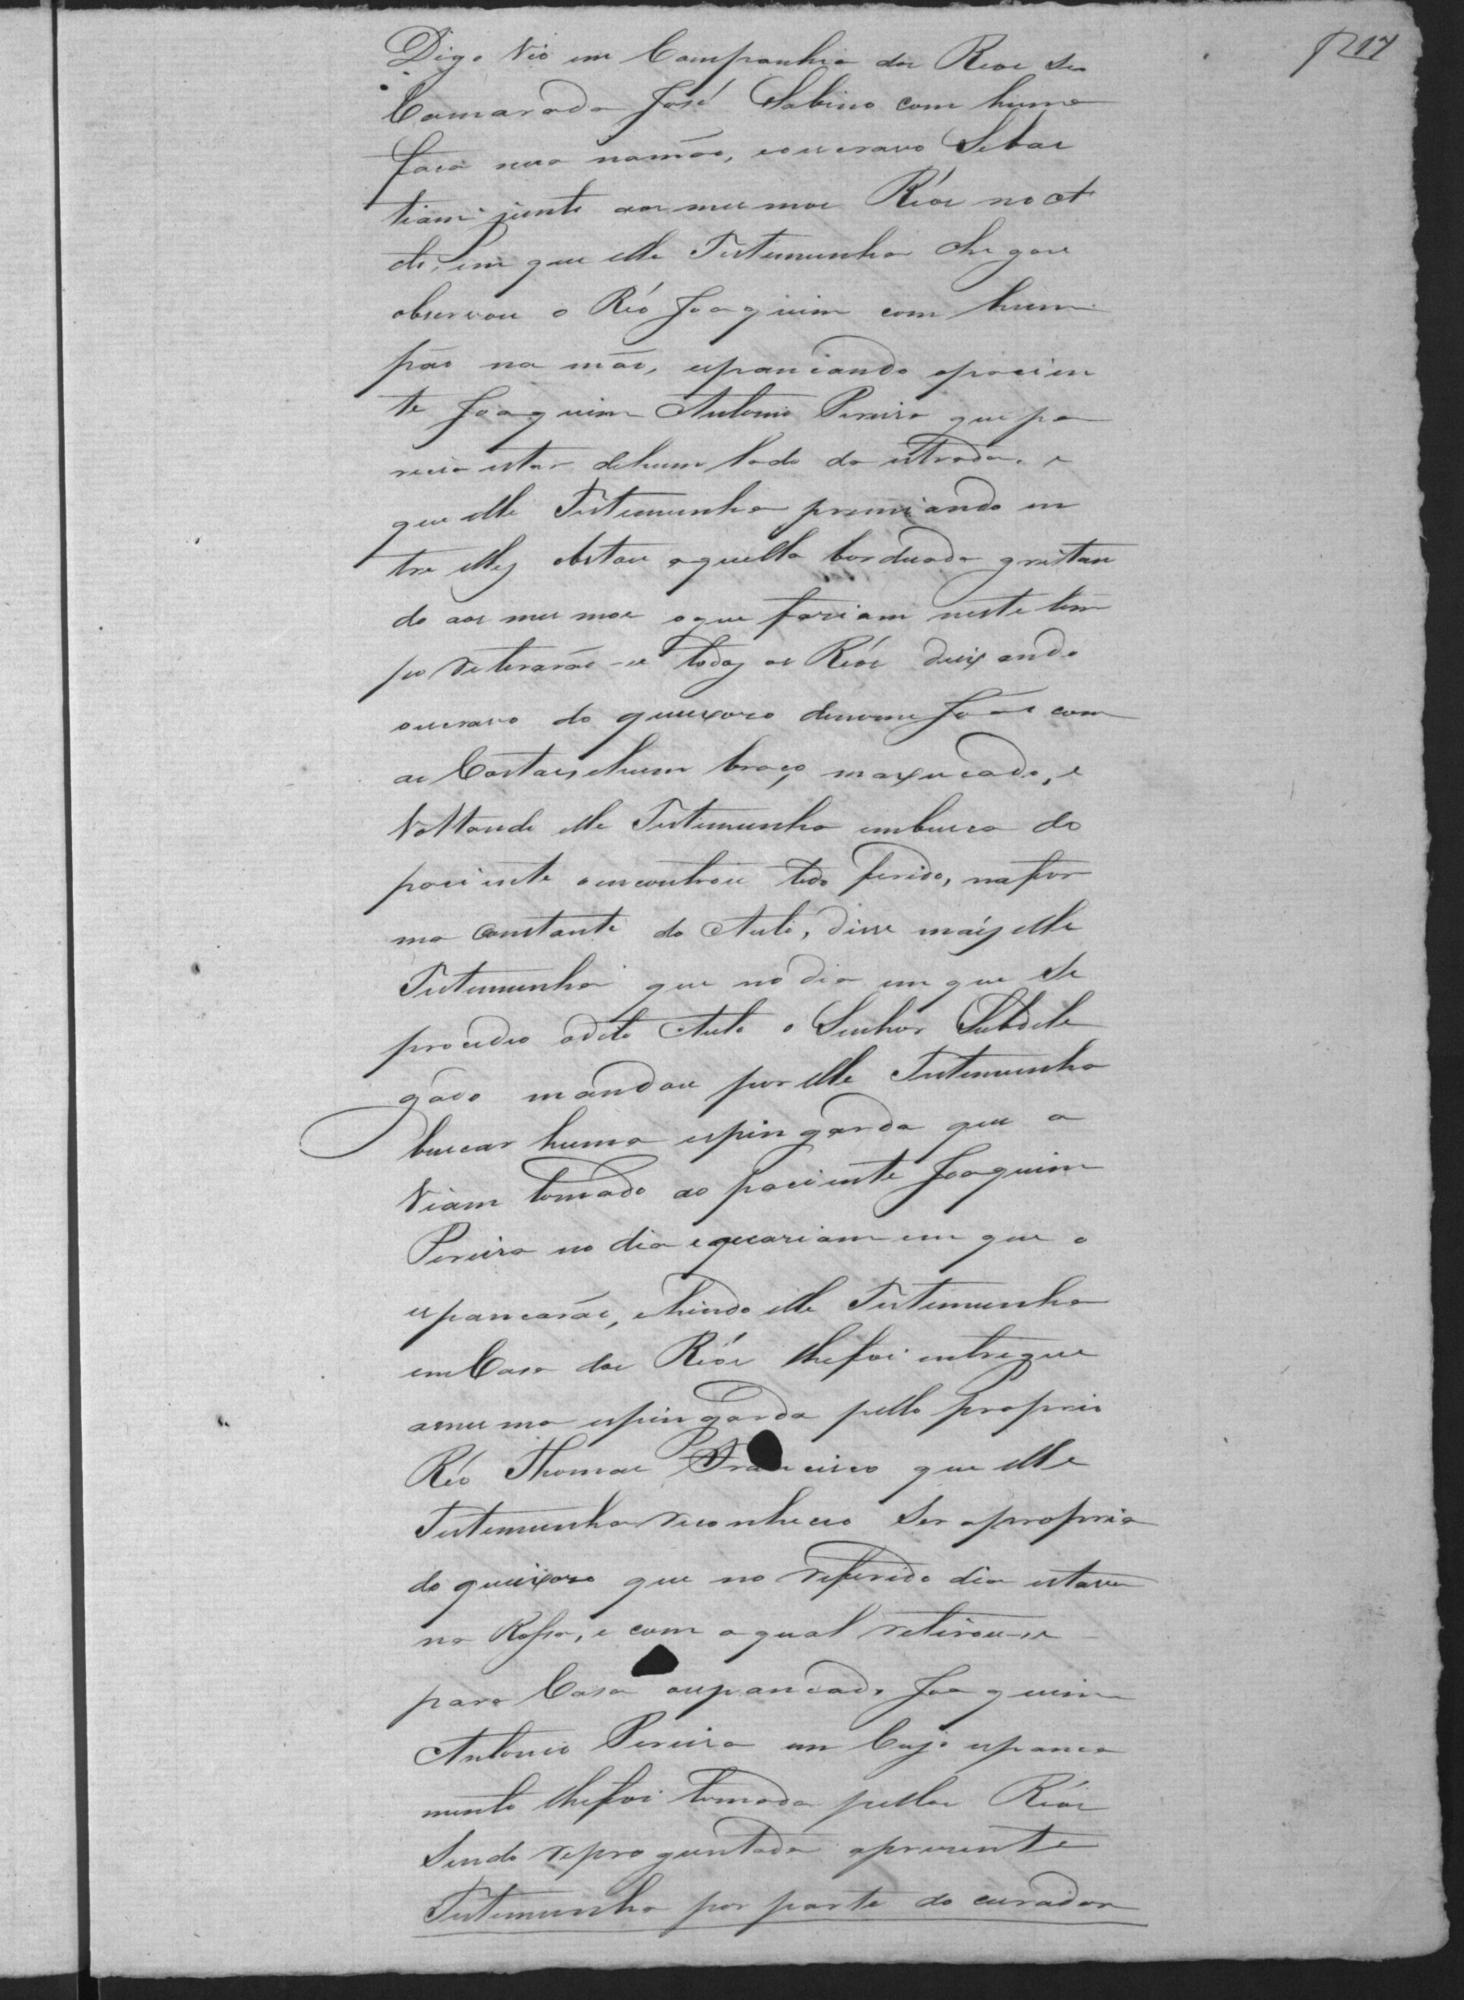 17
Digo Vio em Companhia dos Reos seo
Camarada José Sabino com huma
faca nua namão, eoescravo Sebas
tiam junto aos mesmos Réos no at
to, em que elle Testemunha chegou
observou o Réo Joaquim com hum
páo na mão, espanciando opacien
te Joaquim Antonio Pereira que pa
recia estar dehum lado da estrada, e
que elle Testemunha prinsiando en
tre elles obstou aquella borduada gritan
do aos mesmos oque fasiam neste tem
po retirarão-se todos os Réos deixando
oescravo do queixoso denome João com
as Costas, ehum braço maxucado, e
Voltando elle Testemunha embusca do
paciente oencontrou todo ferido, nafor
ma Constante do Auto, disse mais elle
Testemunha que nodia em que se
procedeo odito Auto o Senhor Subdele
gado mandou por elle Testemunha
buscar huma espingarda que a
viam tomado ao paciente Joaquim
Pereira no dia eocariam em que o
espancarão, ehindo elle Testemunha
emCasa dos Réos lhefoi entregue
amesma espingarda pello proprio
Réo Thomas Francisco que elle
Testemunha reconheceo ser apropria
do queixoso que no referido dia estava
na Rossa, e com aqual retirou-se
para Casa oespancado Joaquim
Antonio Pereira em Cujo espanca
mento lhefoi tomada pellos Réos
Sendo reproguntada apresente
Testemunha por parte do curador